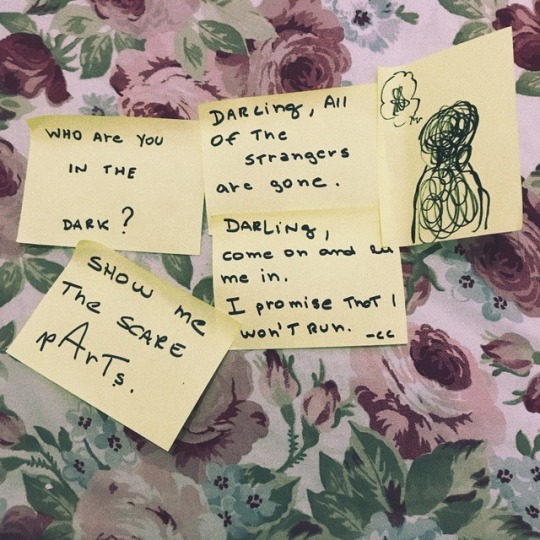 WHO Are You
IN THE
DARK?
SHOW me
The SCARE
pArTs.
DARLing, All
Of The
STrangers
are gone.
DARLING,
come on and
me in.
I promise ThaT I
won'T Run. -cc